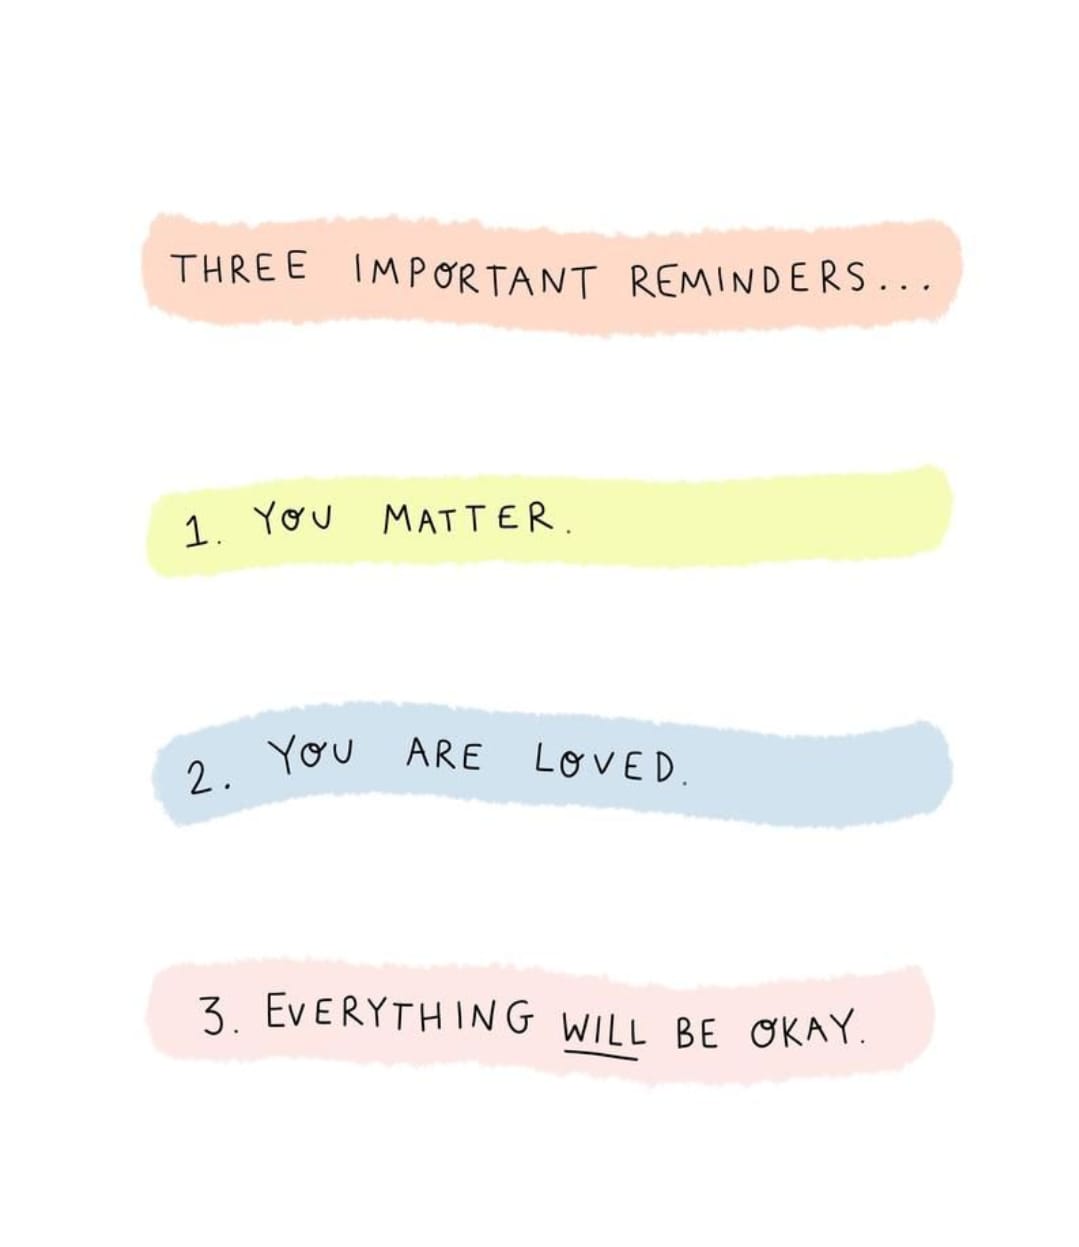 THREE IMPORTANT REMINDERS...
1. YOU MATTER.
2. YOU ARE LOVED.
3. EVERYTHING WILL BE OKAY.